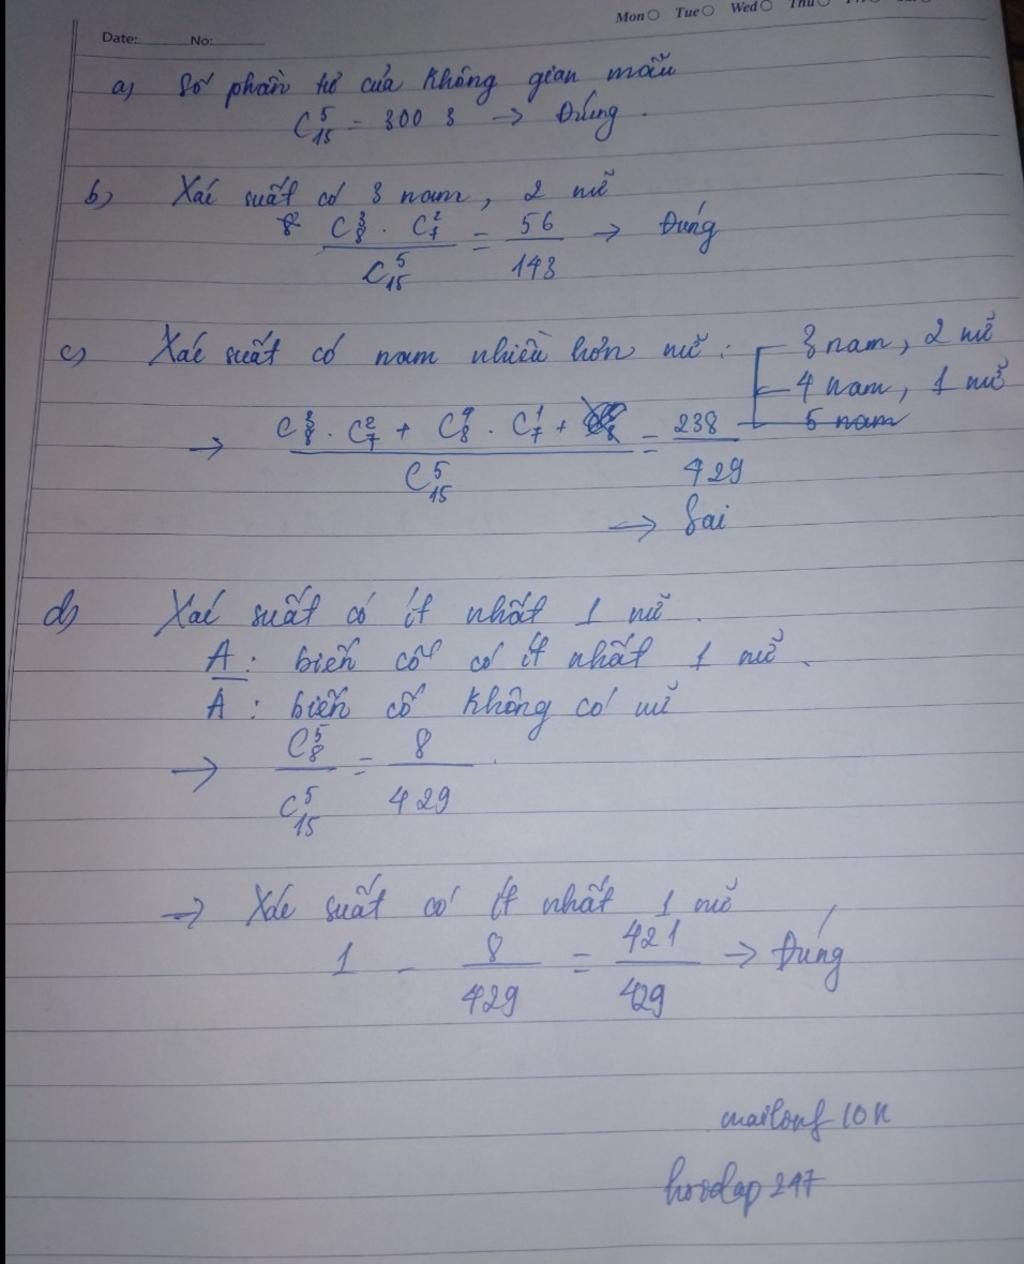 Mon Tue Wed Thu
Date: No:
a) Số phần tử của không gian mẫu
C₁₅⁵ = 3003 → Đúng.
b) Xác suất có 3 nam, 2 nữ
C₈³ . C₇² / C₁₅⁵ = 56 / 143 → Đúng
c) Xác suất có nam nhiều hơn nữ : 3 nam, 2 nữ
4 nam, 1 nữ
5 nam
→ C₈³ . C₇² + C₈⁴ . C₇¹ + / C₁₅⁵ = 238 / 429
→ Sai
d) Xác suất có ít nhất 1 nữ.
A : biến cố có ít nhất 1 nữ.
A̅ : biến cố không có nữ
→ C₈⁵ / C₁₅⁵ = 8 / 429
→ Xác suất có ít nhất 1 nữ
1 - 8 / 429 = 421 / 429 → Đúng
hoidap247